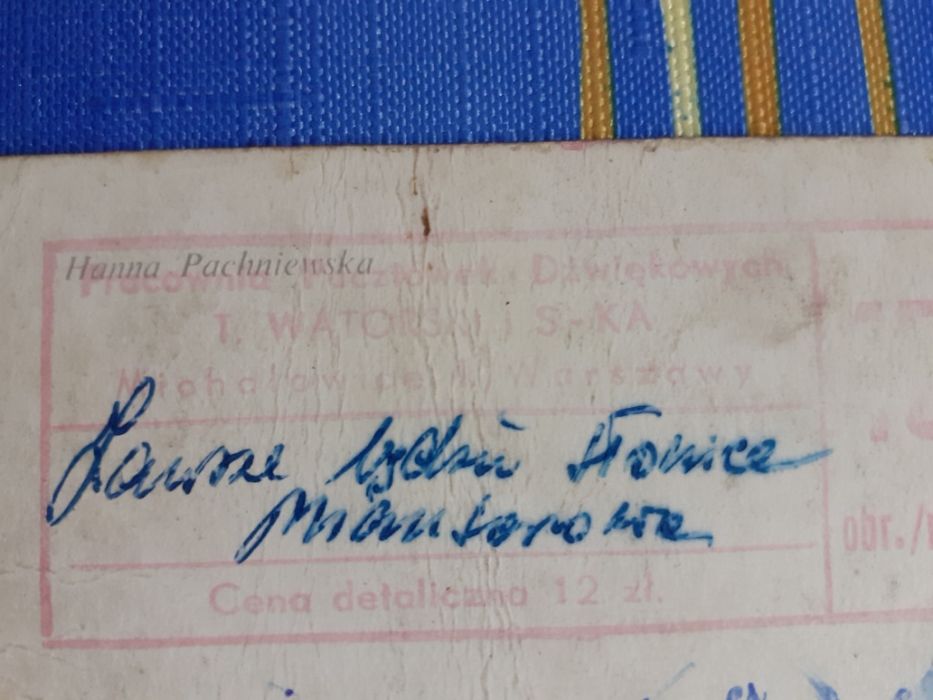 Hanna Pachniewska
Pracownia Pocztówek Dźwiękowych
T. WATORSKI i S-KA
Michałowice k. Warszawy
Zawsze będzie słońce
obr./
Cena detaliczna 12 zł.